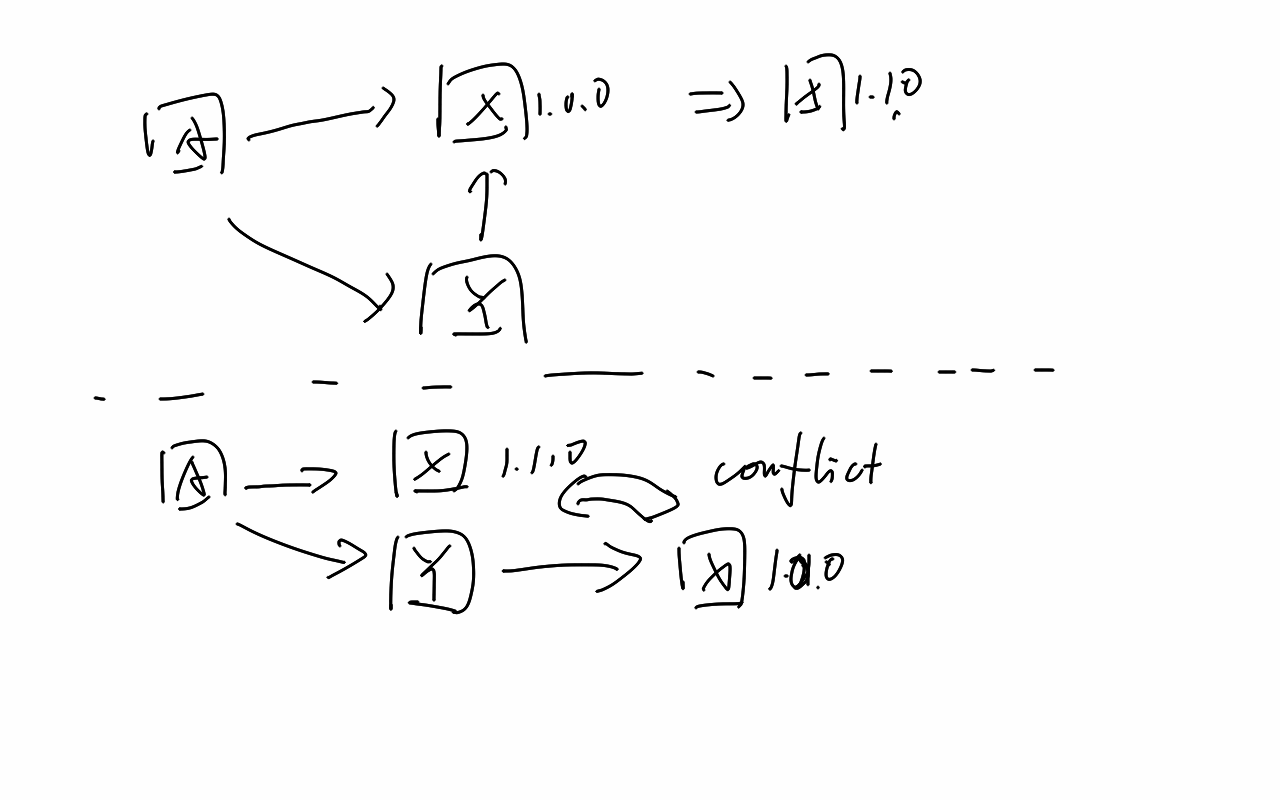 A X 1.0.0 ⇒ X 1.1.0
Y
A X 1.1.0 conflict
Y X